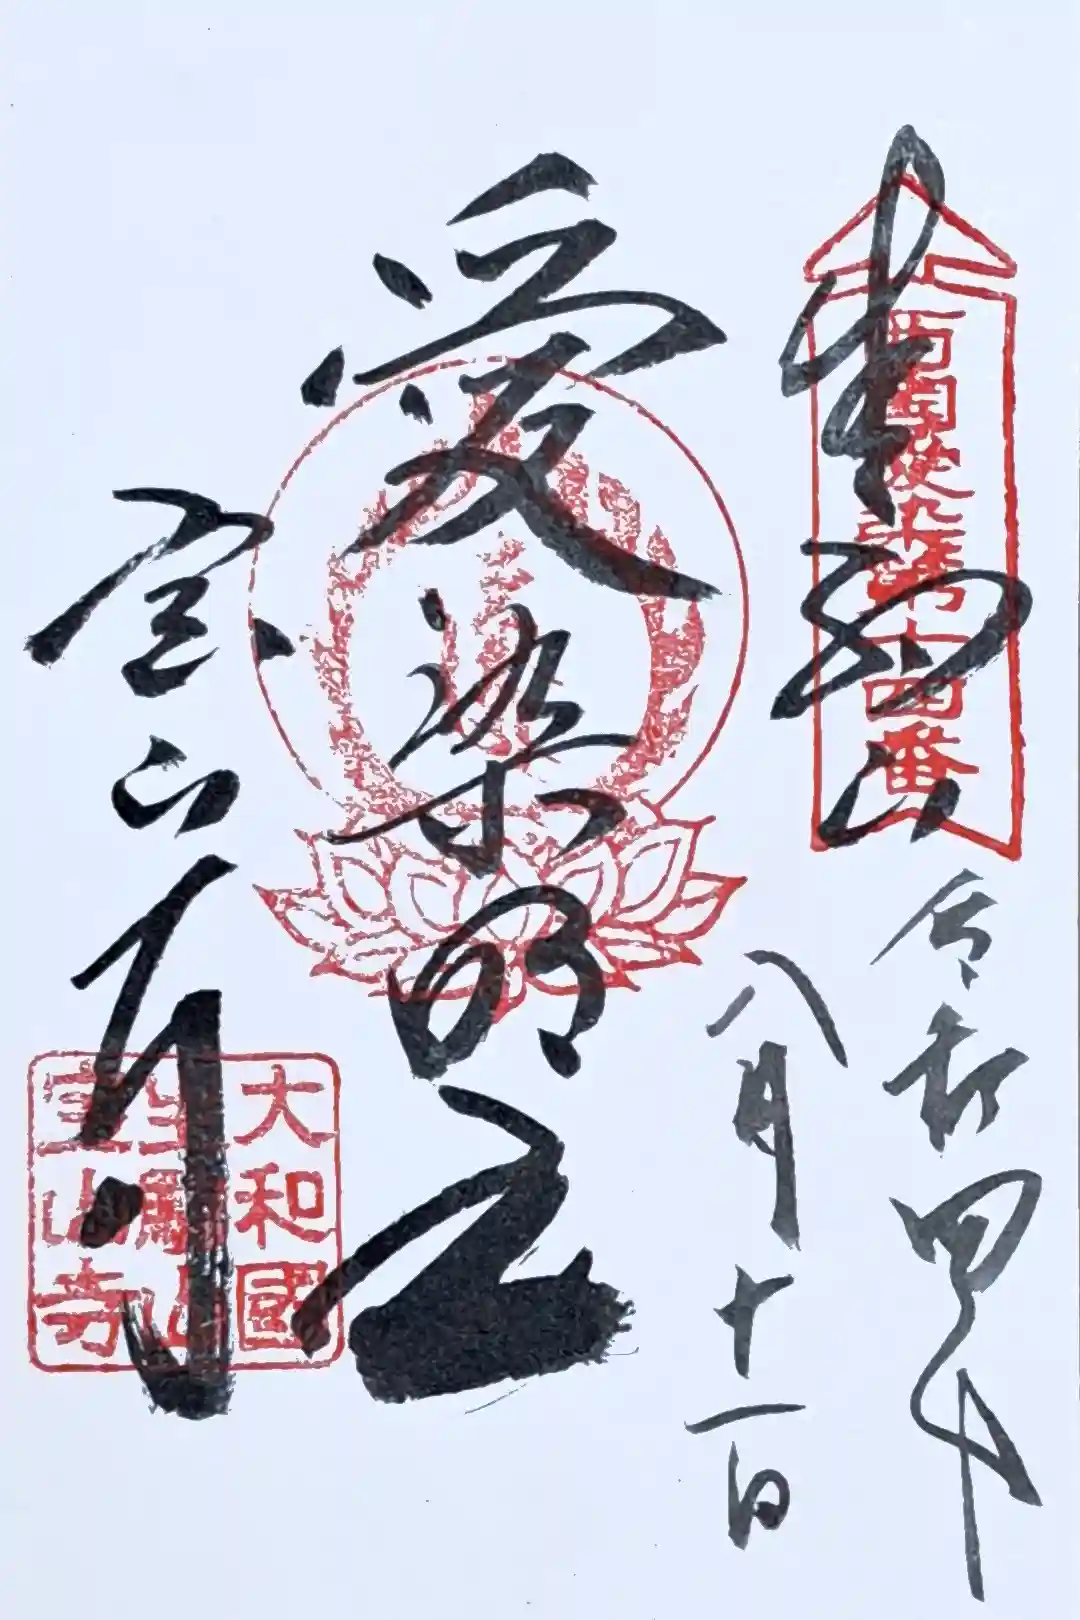 生駒山
西国愛染第十四番
令和四年
八月十一日
愛染明王
宝山寺
大和國
生駒山
宝山寺